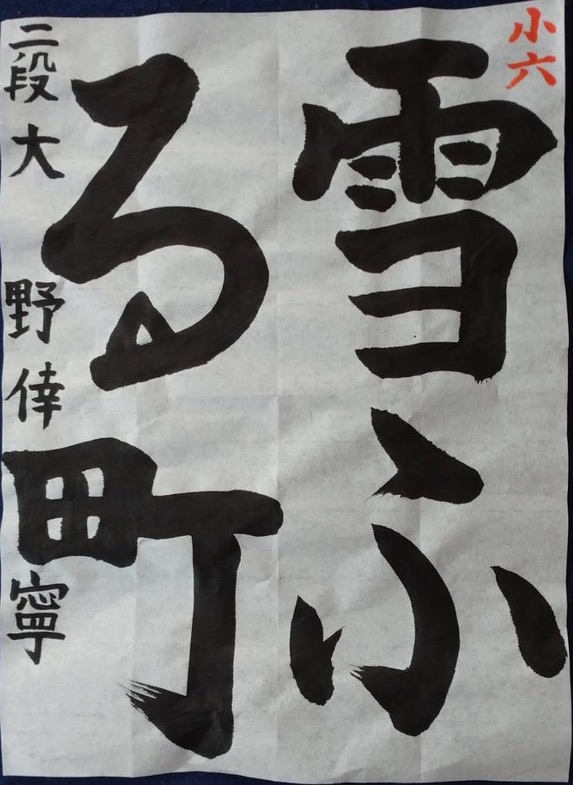 小六
雪ふ
る町
二段 大野倖寧